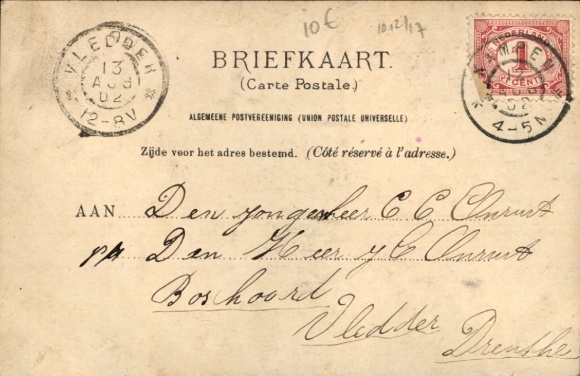 10€
10.12/17
VLEDDER
13
AUG
02
12-8V
NEDERLAND
1
CENT
4-5N
BRIEFKAART.
(Carte Postale.)
ALGEMEENE POSTVEREENIGING (UNION POSTALE UNIVERSELLE)
Zijde voor het adres bestemd. (Côté réservé à l'adresse.)
AAN Den jongeheer C C Onrust
p/a Den Heer J C Onrust
Boshoord
Vledder
Drenthe